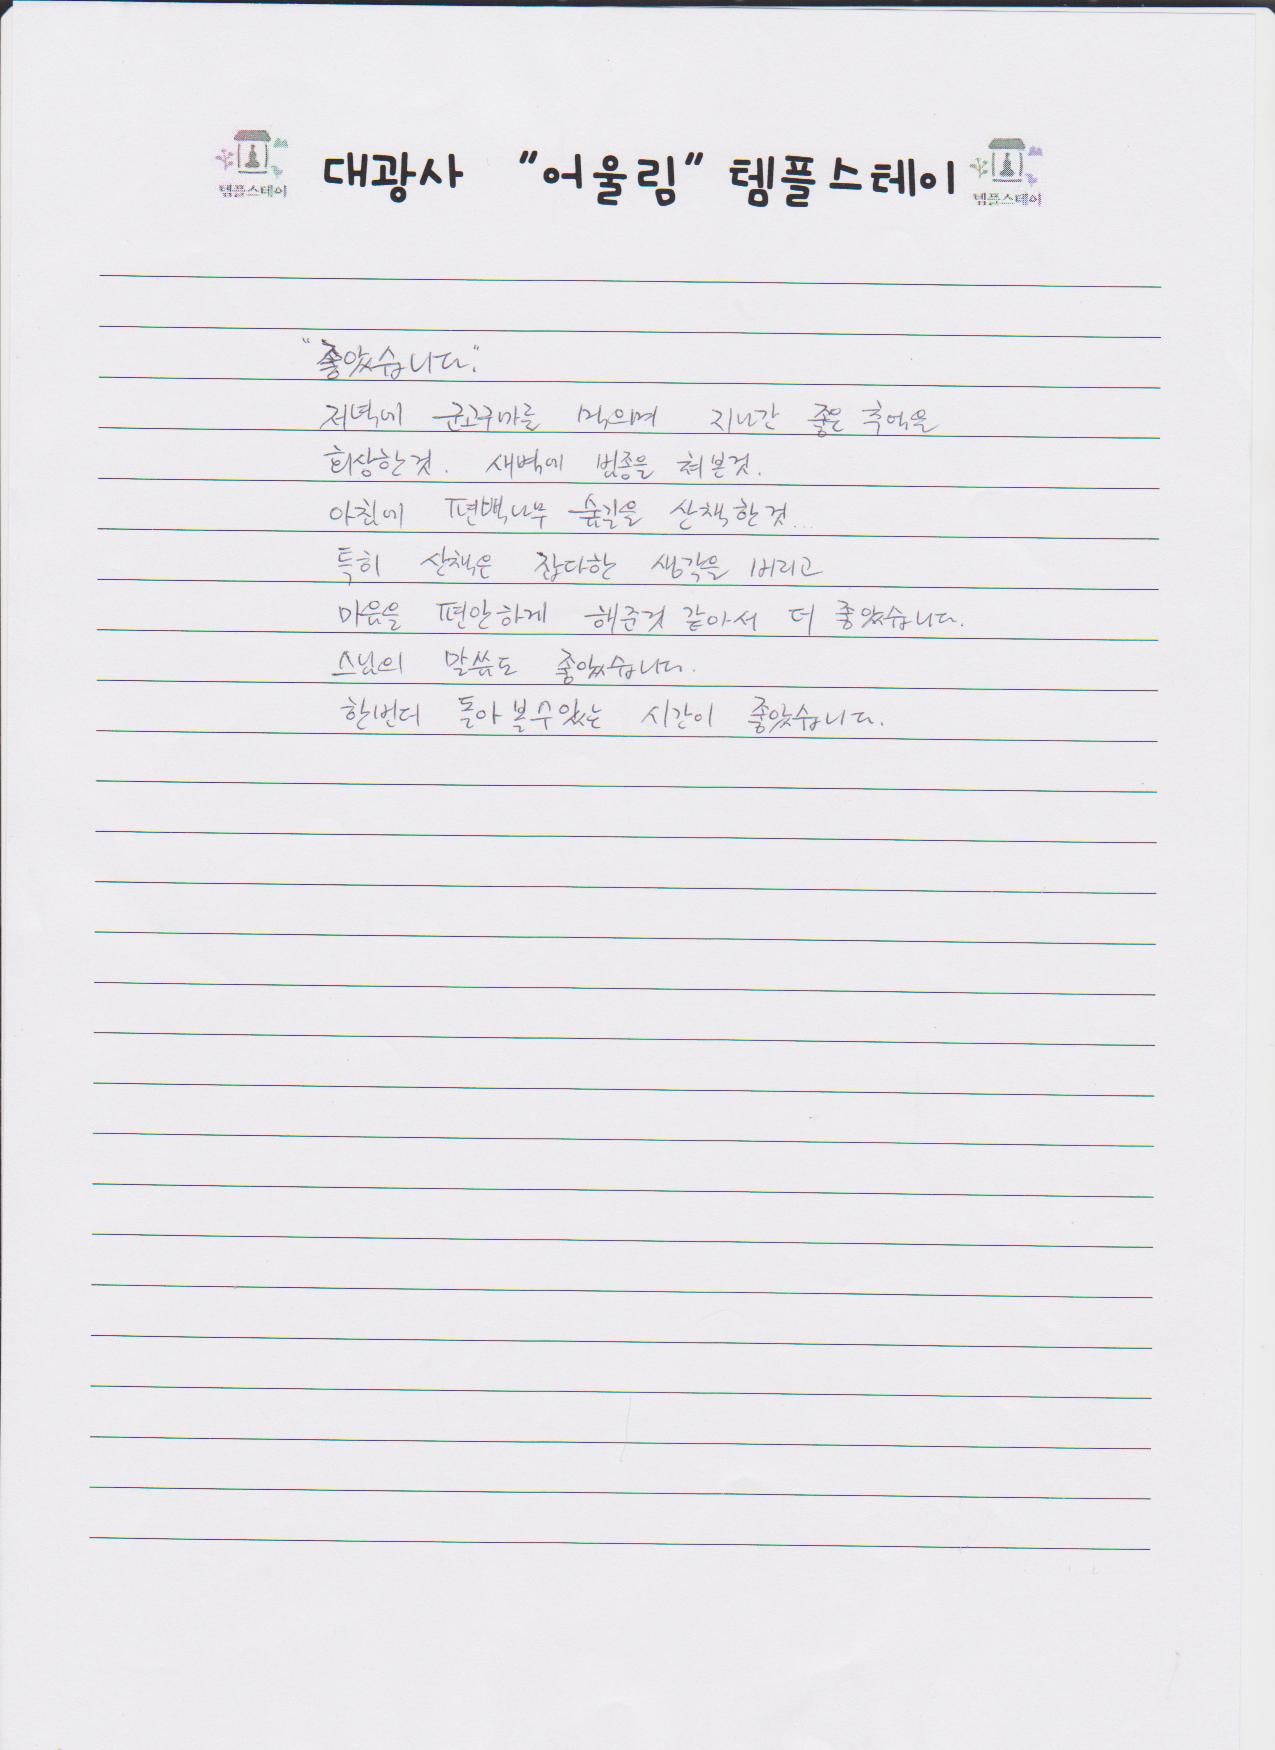 대광사 "어울림" 템플스테이
템플스테이
템플스테이
"좋았습니다."
저녁에 군고구마를 먹으며 지나간 좋은 추억을
회상한것. 새벽에 범종을 쳐본것.
아침에 편백나무 숲길을 산책한것...
특히 산책은 잡다한 생각을 버리고
마음을 편안하게 해준것 같아서 더 좋았습니다.
스님의 말씀도 좋았습니다.
한번더 돌아볼수있는 시간이 좋았습니다.